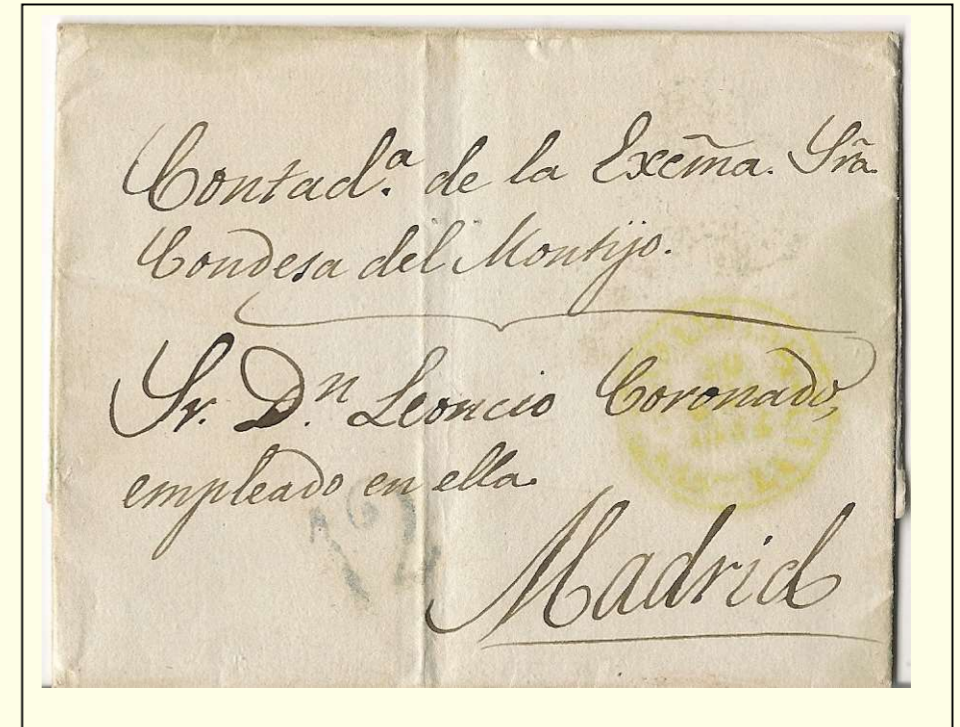 Contad.ª de la Excma. Sr̃a.
Condesa del Montijo.
Sr. D.n Leoncio Coronado,
empleado en ella.
Madrid